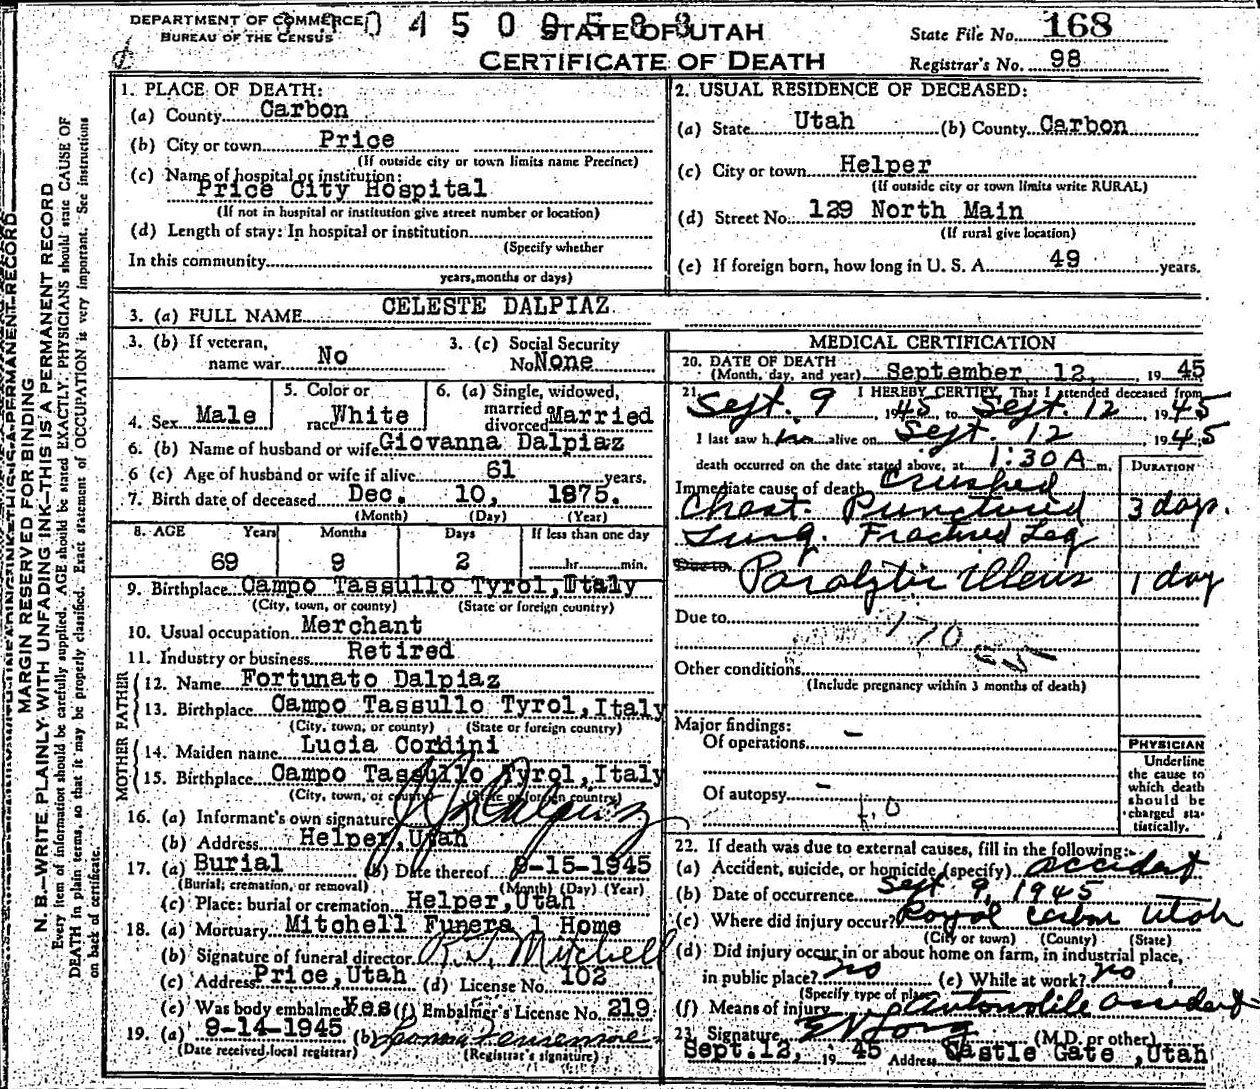 DEPARTMENT OF COMMERCE
BUREAU OF THE CENSUS
STATE OF UTAH
CERTIFICATE OF DEATH
State File No. 168
Registrar's No. 98
MARGIN RESERVED FOR BINDING
N. B.—WRITE PLAINLY WITH UNFADING INK—THIS IS A PERMANENT RECORD
Every item of information should be carefully supplied. AGE should be stated EXACTLY. PHYSICIANS should state CAUSE OF
DEATH in plain terms, so that it may be properly classified. Exact statement of OCCUPATION is very important. See instructions
on back of certificate.
1. PLACE OF DEATH:
(a) County Carbon
(b) City or town Price
(If outside city or town limits name Precinct)
(c) Name of hospital or institution:
Price City Hospital
(If not in hospital or institution give street number or location)
(d) Length of stay: In hospital or institution
(Specify whether
In this community
years, months or days)
2. USUAL RESIDENCE OF DECEASED:
(a) State Utah (b) County Carbon
(c) City or town Helper
(If outside city or town limits write RURAL)
(d) Street No. 129 North Main
(If rural give location)
(e) If foreign born, how long in U. S. A. 49 years.
3. (a) FULL NAME CELESTE DALPIAZ
3. (b) If veteran,
name war No
3. (c) Social Security
No None
4. Sex Male
5. Color or
race White
6. (a) Single, widowed,
married
divorced Married
6. (b) Name of husband or wife Giovanna Dalpiaz
6 (c) Age of husband or wife if alive 61 years.
7. Birth date of deceased Dec. 10, 1875.
(Month) (Day) (Year)
8. AGE Years Months Days If less than one day
69 9 2 hr. min.
9. Birthplace Campo Tassullo Tyrol, Italy
(City, town, or county) (State or foreign country)
10. Usual occupation Merchant
11. Industry or business Retired
FATHER
12. Name Fortunato Dalpiaz
13. Birthplace Campo Tassullo Tyrol, Italy
(City, town, or county) (State or foreign country)
MOTHER
14. Maiden name Lucia Cordini
15. Birthplace Campo Tassullo Tyrol, Italy
(City, town, or county) (State or foreign country)
16. (a) Informant's own signature Dalpiaz
(b) Address Helper, Utah
17. (a) Burial (b) Date thereof 9-15-1945
(Burial, cremation, or removal) (Month) (Day) (Year)
(c) Place: burial or cremation Helper, Utah
18. (a) Mortuary Mitchell Funeral Home
(b) Signature of funeral director Mitchell
(c) Address Price, Utah (d) License No. 102
(e) Was body embalmed Yes (f) Embalmer's License No. 219
19. (a) 9-14-1945 (b)
(Date received local registrar) (Registrar's signature)
MEDICAL CERTIFICATION
20. DATE OF DEATH
(Month, day, and year) September 12, 1945
21. I HEREBY CERTIFY, That I attended deceased from
Sept. 9 1945 to Sept. 12 1945
I last saw him alive on Sept. 12 1945
death occurred on the date stated above, at 1:30 A m.
DURATION
Immediate cause of death Crushed
Chest. Punctured 3 days.
Lung. Fractured Leg
Due to Paralytic illeus 1 day
Due to
170
Other conditions
(Include pregnancy within 3 months of death)
Major findings:
Of operations -
Of autopsy -
PHYSICIAN
Underline
the cause to
which death
should be
charged sta-
tistically.
22. If death was due to external causes, fill in the following:
(a) Accident, suicide, or homicide (specify) accident
(b) Date of occurrence Sept 9, 1945
(c) Where did injury occur? Royal Carbon Utah
(City or town) (County) (State)
(d) Did injury occur in or about home on farm, in industrial place,
in public place? no (e) While at work? no
(Specify type of place)
(f) Means of injury automobile accident
23. Signature (M.D. or other)
Sept. 12, 1945 Address Castle Gate, Utah